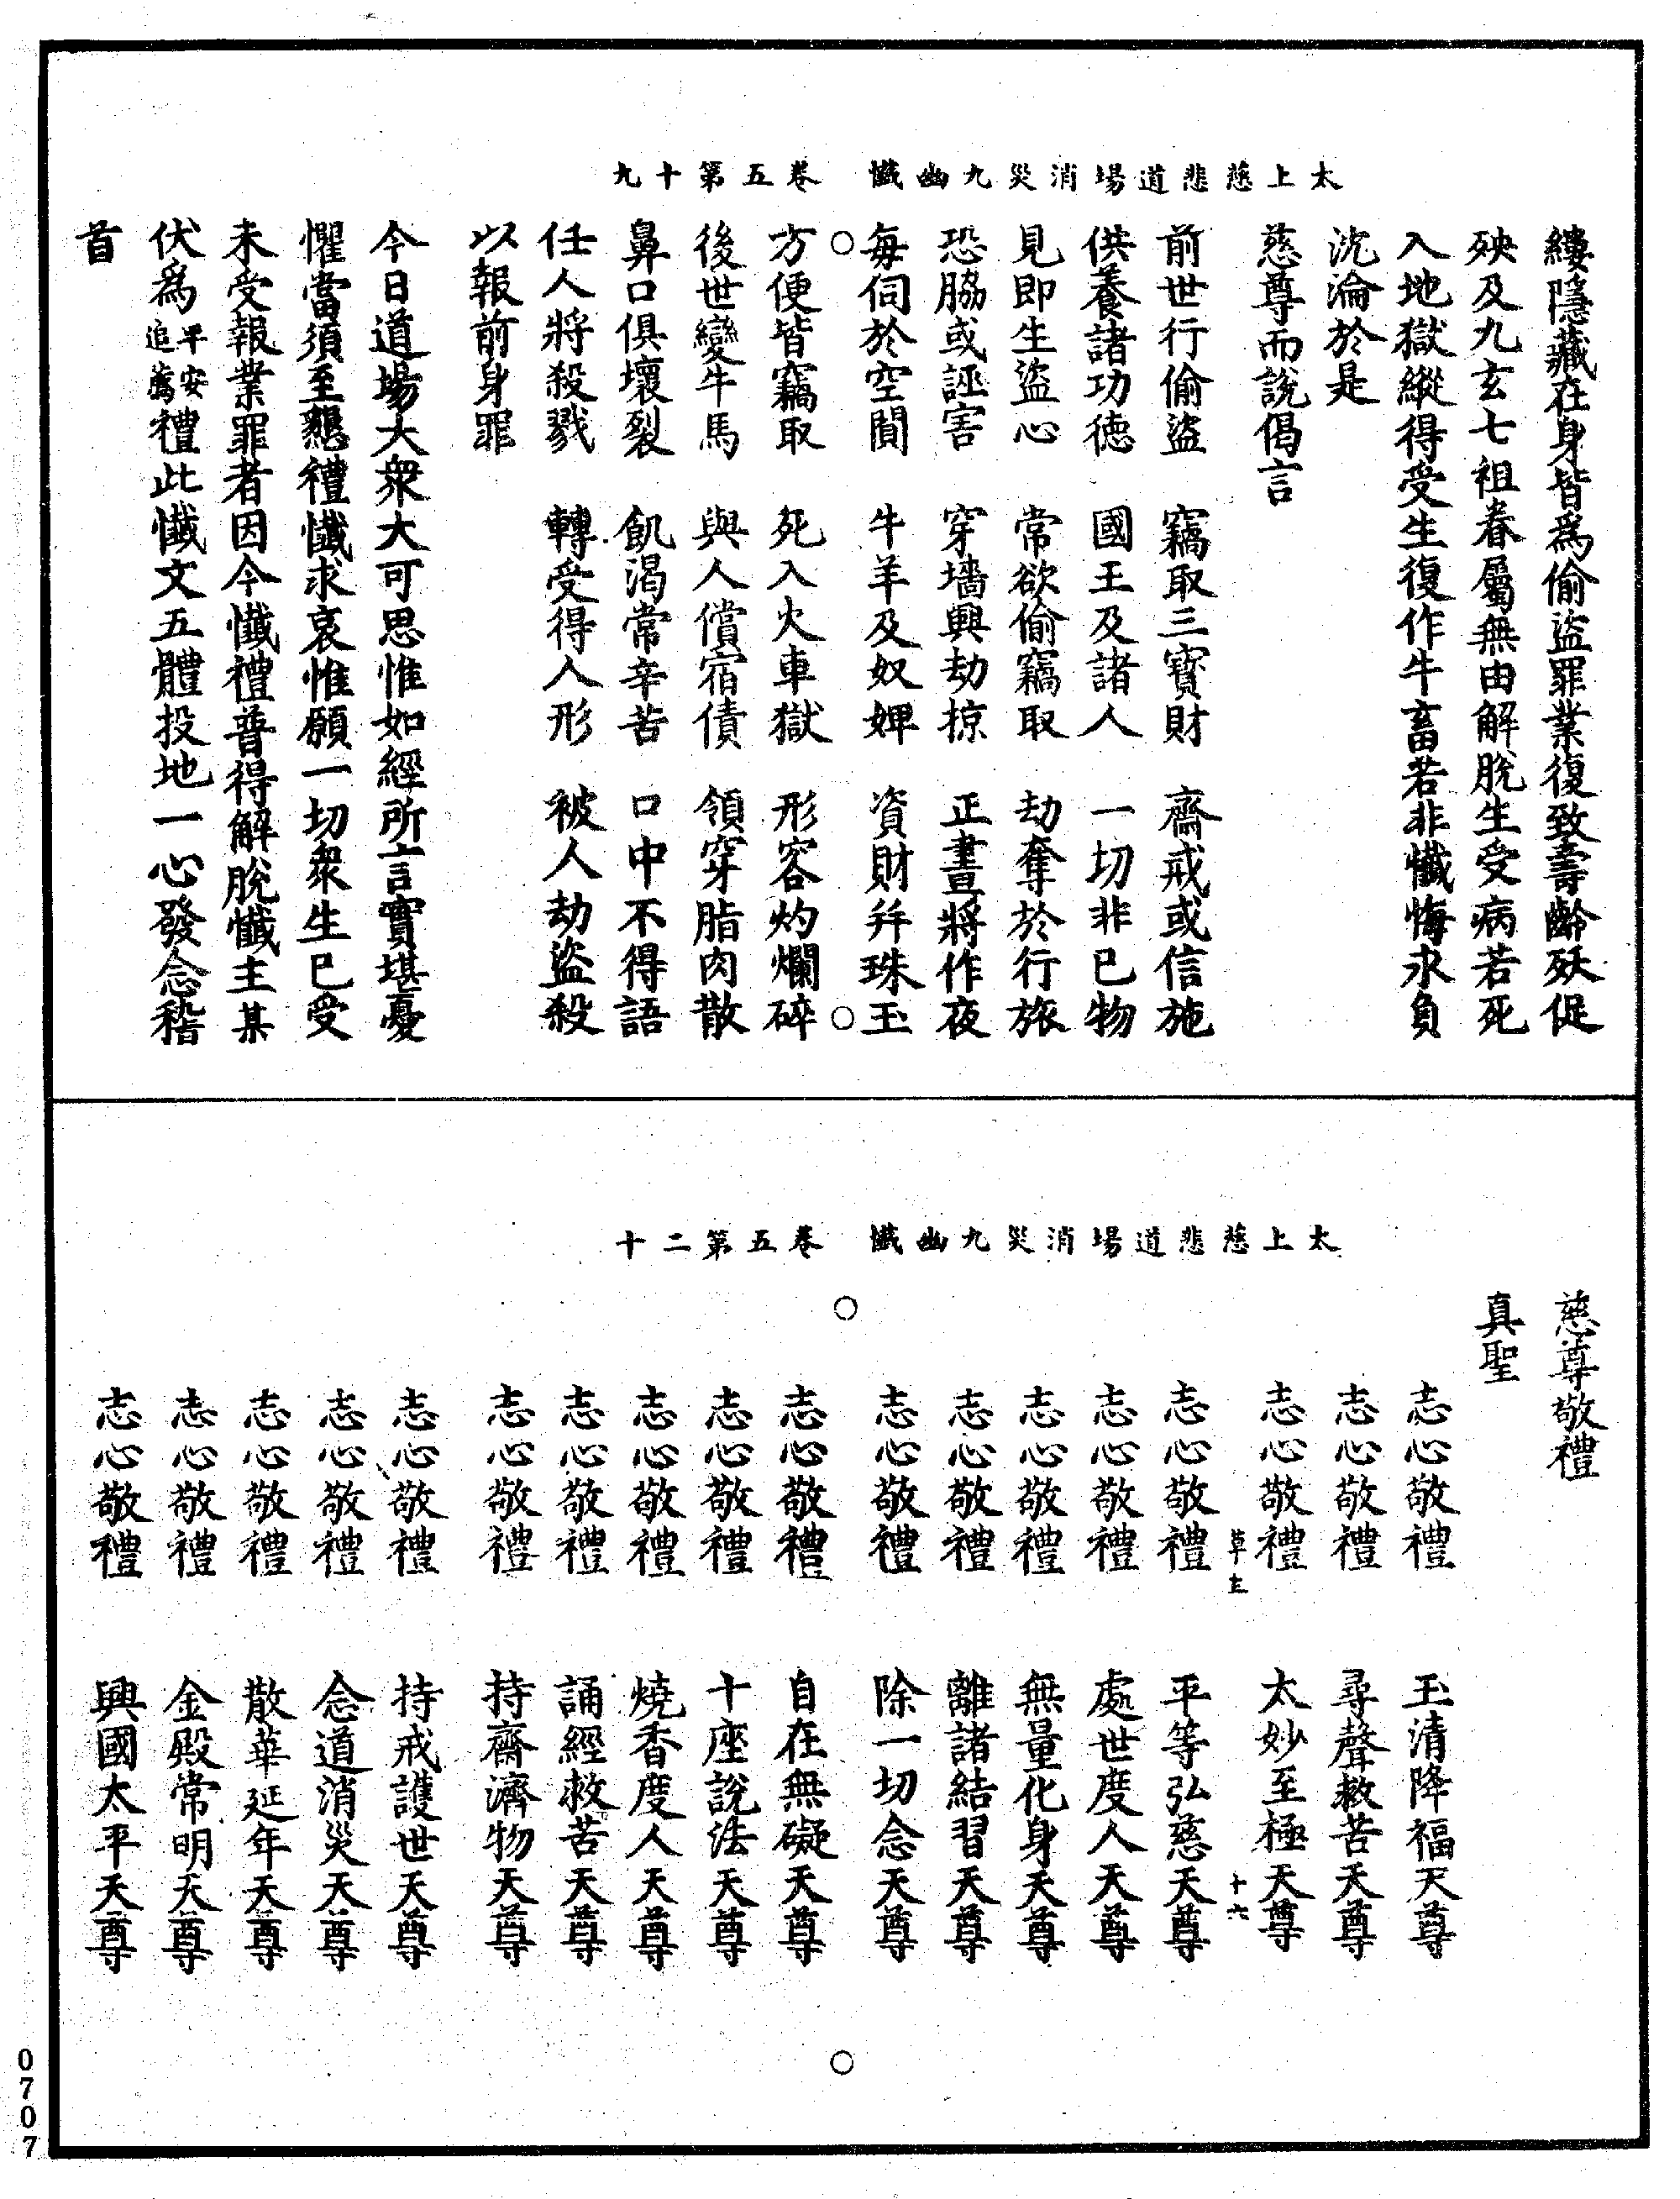 太上慈悲道場消災九幽懺　卷五第十九
縷隱藏在身皆爲偷盜罪業復致壽齡殀促
殃及九玄七祖眷屬無由解脫生受病若死
入地獄縱得受生復作牛畜若非懺悔永負
沈淪於是
慈尊而說偈言
前世行偷盜　竊取三寶財　齋戒或信施
供養諸功德　國王及諸人　一切非已物
見即生盜心　常欲偷竊取　劫奪於行旅
恐脇或誣害　穿墻興劫掠　正晝將作夜
每伺於空閒　牛羊及奴婢　資財并珠玉
方便皆竊取　死入火車獄　形容灼爛碎
後世變牛馬　與人償宿債　領穿脂肉散
鼻口俱壞裂　飢渴常辛苦　口中不得語
任人將殺戮　轉受得人形　被人劫盜殺
以報前身罪
今日道場大衆大可思惟如經所言實堪憂
懼當須至懇禮懺求哀惟願一切衆生已受
未受報業罪者因今懺禮普得解脫懺主某
伏爲平安追薦禮此懺文五體投地一心發念稽
首
太上慈悲道場消災九幽懺　卷五第二十
慈尊敬禮
真聖
志心敬禮　玉清降福天尊
志心敬禮　尋聲救苦天尊
志心敬禮　太妙至極天尊
草七　十六
志心敬禮　平等弘慈天尊
志心敬禮　處世度人天尊
志心敬禮　無量化身天尊
志心敬禮　離諸結習天尊
志心敬禮　除一切念天尊
志心敬禮　自在無礙天尊
志心敬禮　十座說法天尊
志心敬禮　燒香度人天尊
志心敬禮　誦經救苦天尊
志心敬禮　持齋濟物天尊
志心敬禮　持戒護世天尊
志心敬禮　念道消災天尊
志心敬禮　散華延年天尊
志心敬禮　金殿常明天尊
志心敬禮　興國太平天尊
0707